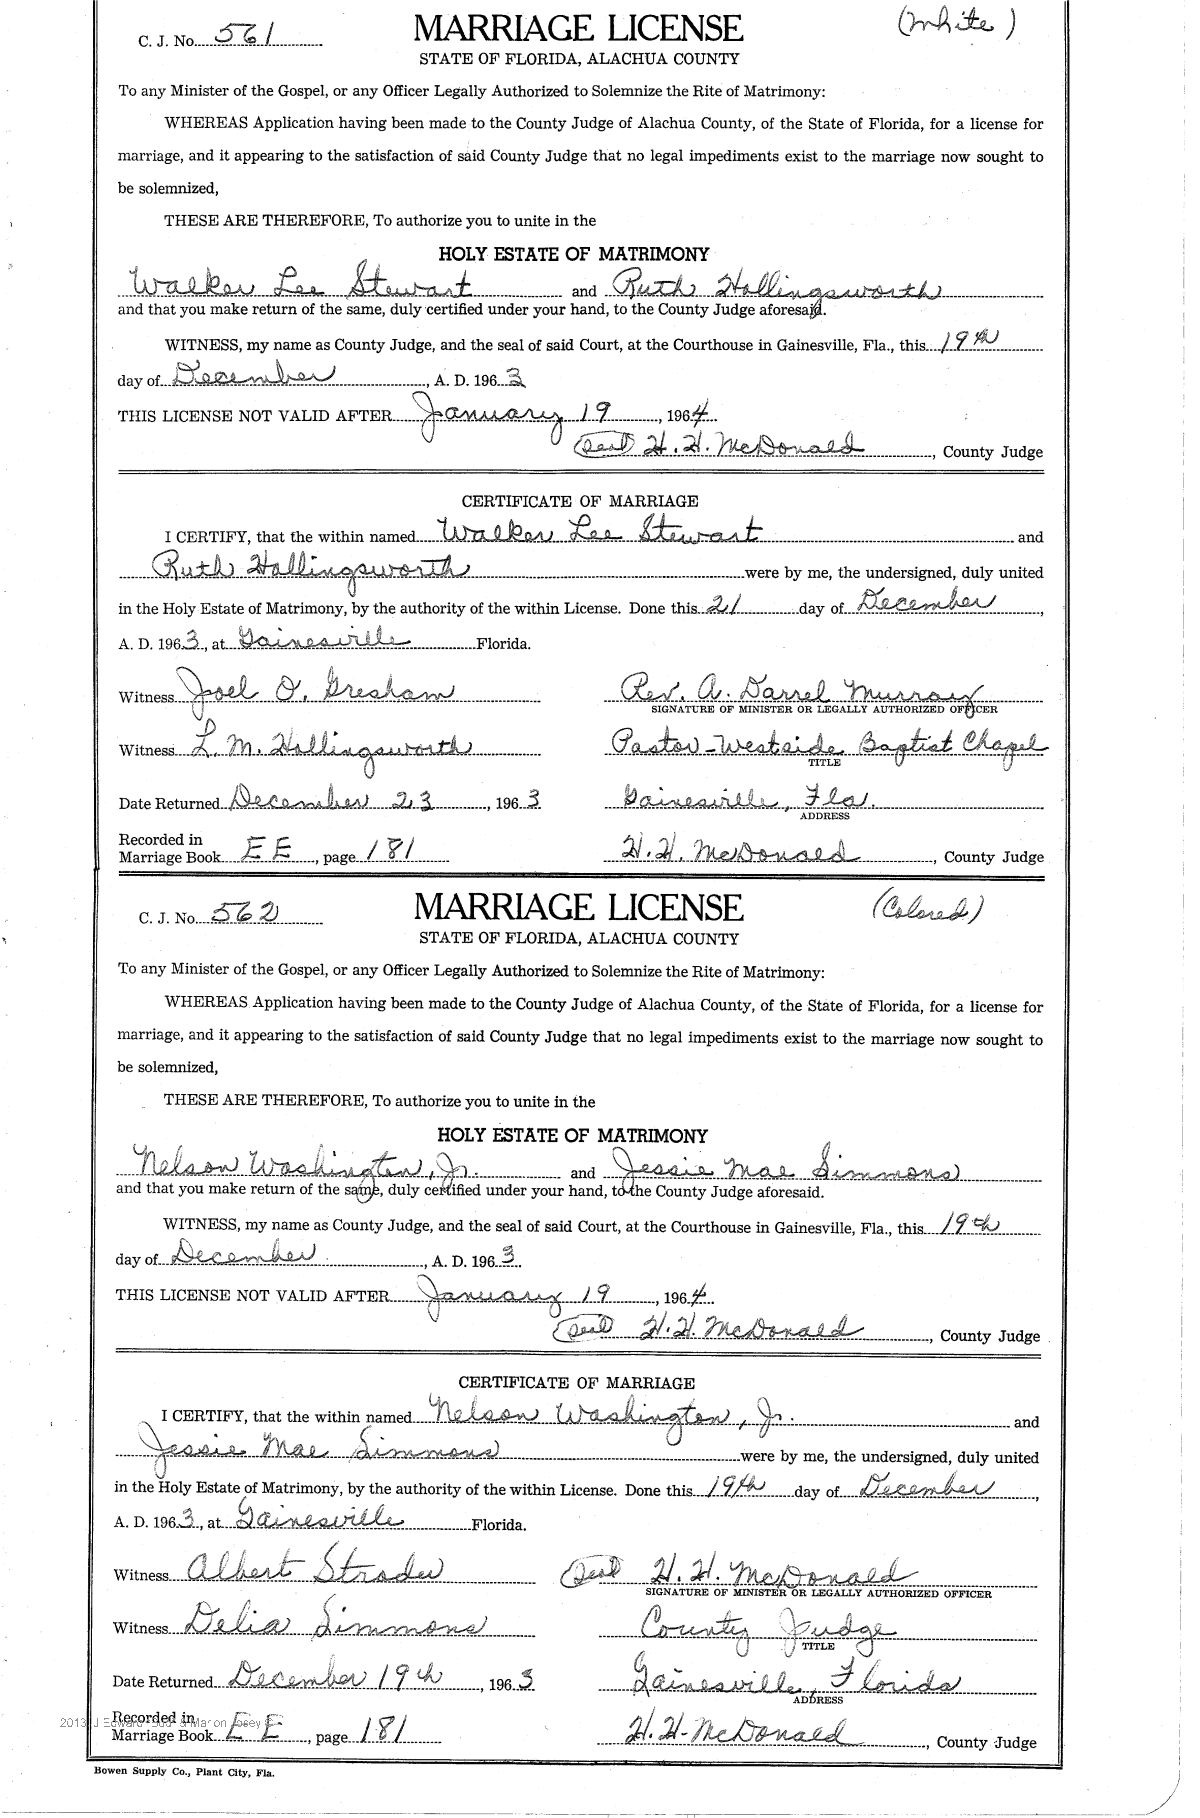 C. J. No. 561 MARRIAGE LICENSE (White)
STATE OF FLORIDA, ALACHUA COUNTY
To any Minister of the Gospel, or any Officer Legally Authorized to Solemnize the Rite of Matrimony:
WHEREAS Application having been made to the County Judge of Alachua County, of the State of Florida, for a license for
marriage, and it appearing to the satisfaction of said County Judge that no legal impediments exist to the marriage now sought to
be solemnized,
THESE ARE THEREFORE, To authorize you to unite in the
HOLY ESTATE OF MATRIMONY
Walker Lee Stewart and Ruth Hollingsworth
and that you make return of the same, duly certified under your hand, to the County Judge aforesaid.
WITNESS, my name as County Judge, and the seal of said Court, at the Courthouse in Gainesville, Fla., this 19th
day of December, A. D. 1963
THIS LICENSE NOT VALID AFTER January 19, 1964
(Seal) H. H. McDonald, County Judge
CERTIFICATE OF MARRIAGE
I CERTIFY, that the within named Walker Lee Stewart and
Ruth Hollingsworth were by me, the undersigned, duly united
in the Holy Estate of Matrimony, by the authority of the within License. Done this 21 day of December,
A. D. 1963, at Gainesville Florida.
Witness Joel O. Gresham Rev. A. Darrel Murray
SIGNATURE OF MINISTER OR LEGALLY AUTHORIZED OFFICER
Witness L. M. Hollingsworth Pastor-Westside Baptist Chapel
TITLE
Date Returned December 23, 1963 Gainesville, Fla.
ADDRESS
Recorded in
Marriage Book EE, page 181 H. H. McDonald, County Judge
C. J. No. 562 MARRIAGE LICENSE (Colored)
STATE OF FLORIDA, ALACHUA COUNTY
To any Minister of the Gospel, or any Officer Legally Authorized to Solemnize the Rite of Matrimony:
WHEREAS Application having been made to the County Judge of Alachua County, of the State of Florida, for a license for
marriage, and it appearing to the satisfaction of said County Judge that no legal impediments exist to the marriage now sought to
be solemnized,
THESE ARE THEREFORE, To authorize you to unite in the
HOLY ESTATE OF MATRIMONY
Nelson Washington, Jr. and Jessie Mae Simmons
and that you make return of the same, duly certified under your hand, to the County Judge aforesaid.
WITNESS, my name as County Judge, and the seal of said Court, at the Courthouse in Gainesville, Fla., this 19th
day of December, A. D. 1963
THIS LICENSE NOT VALID AFTER January 19, 1964
(Seal) H. H. McDonald, County Judge
CERTIFICATE OF MARRIAGE
I CERTIFY, that the within named Nelson Washington, Jr. and
Jessie Mae Simmons were by me, the undersigned, duly united
in the Holy Estate of Matrimony, by the authority of the within License. Done this 19th day of December,
A. D. 1963, at Gainesville Florida.
Witness Albert (Seal) H. H. McDonald
SIGNATURE OF MINISTER OR LEGALLY AUTHORIZED OFFICER
Witness Delia Simmons County Judge
TITLE
Date Returned December 19th, 1963 Gainesville, Florida
ADDRESS
Recorded in
2013 J Edward
Marriage Book EE, page 181 H. H. McDonald, County Judge
Bowen Supply Co., Plant City, Fla.